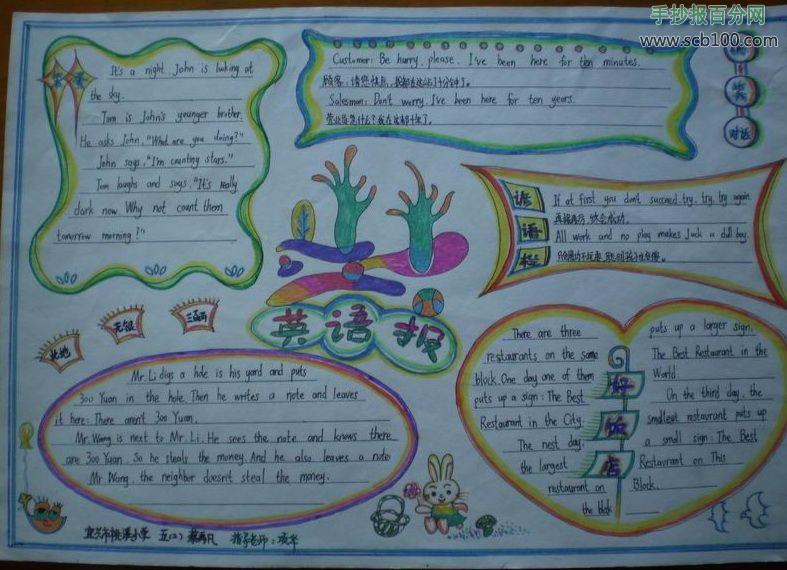 手抄报百分网
www.scb100.com
It's a night. John is looking at
the sky.
Tom is John's younger brother.
He asks John, "What are you doing?"
John says, "I'm counting stars."
Tom laughs and says, "It's really
dark now. Why not count them
tomorrow morning?"
Customer: Be hurry, please. I've been here for ten minutes.
顾客:请您快点,我都在这站了十分钟了。
Salesman: Don't worry. I've been here for ten years.
对话
谚
语
栏
If at first you don't succeed. try, try, try again.
再接再厉,终会成功。
All work and no play makes Jack a dull boy.
英语报
此地
无银
三百两
Mr. Li digs a hole is his yard and puts
300 Yuan in the hole. Then he writes a note and leaves
it here: There aren't 300 Yuan.
Mr Wang is next to Mr. Li. He sees the note and knows there
are 300 Yuan. So he steals the money. And he also leaves a note
Mr Wang, the neighbor doesn't steal the money.
There are three
restaurants on the same
block. One day one of them
puts up a sign: The Best
Restaurant in the City.
The nest day,
the largest
restaurant on
the blok
好
饭
店
puts up a larger sign.
The Best Restaurant in the
World
On the third day, the
smallest restaurant puts up
a small sign: The Best
Restaurant on This
Block.
小学 五(2) 指导老师: